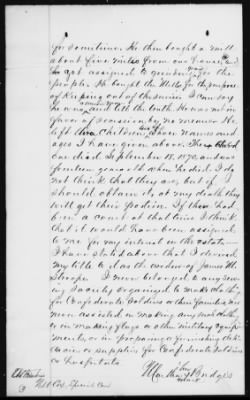 for sometime. He then bought a mill
about five miles from our house, and
he got assigned to grinding for the
people. He bought the Mills for the purpose
of keeping out of the service I can say
he was and tell the truth. He was not in
favor of secession, by no means. He
left children, whose names and
ages I have given above. The
one died September 15, 1870 and was
fourteen years old when he died. I do
not think that they are, but if I
should obtain it, at my death they
will get their portion. If there had
been a court at that time I think
that it would have been assigned
to me for my interest in the estate
I have stated above that I derived
my title to it as the widow of James M.
I never belonged to any sewing
society organized to make clothing
for Confederate soldiers or their families nor
ever assisted in making any such clothing
or in making flags or other military equip-
ments, or in preparing or furnishing deli-
cacies or supplies for Confederate soldiers
or hospitals.
Martha Bridges
mark
Special Com